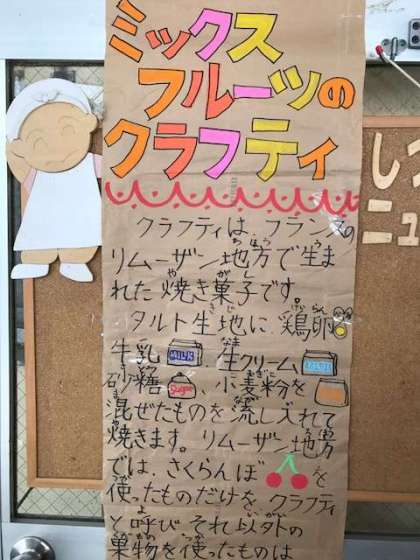 ミックス
フルーツの
クラフティ
クラフティは、フランスの
リムーザン地方で生ま
れた焼き菓子です。
タルト生地に、鶏卵
牛乳 MILK、生クリーム
砂糖 Sugar、小麦粉を
混ぜたものを流し入れて
焼きます。リムーザン地方
では、さくらんぼを
使ったものだけをクラフティ
と呼び それ以外の
菓物を使ったものは
しつ
ニュ